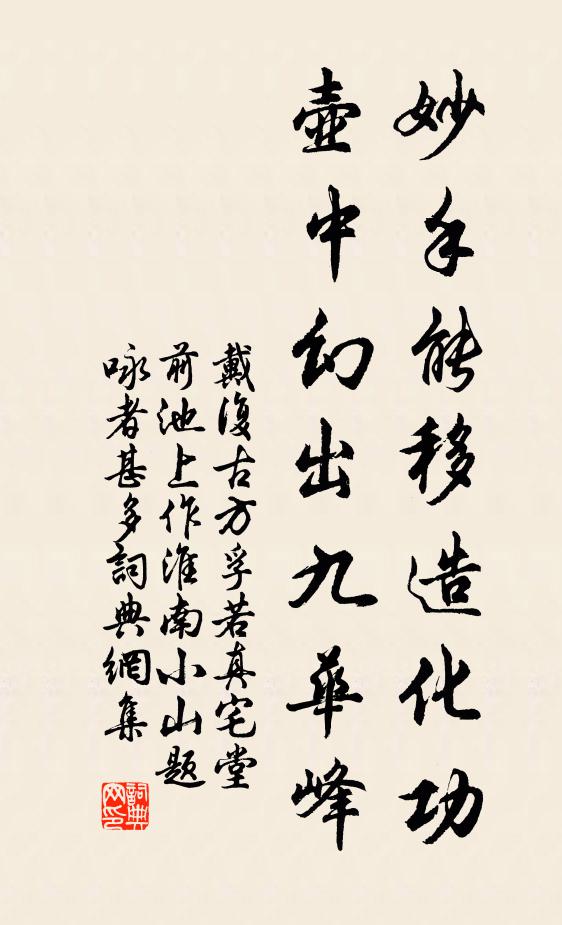 妙手能移造化功
壺中幻出九華峰
戴復古方孚若真宅堂
前池上作淮南小山題
咏者甚多詞典網集
詞典網印